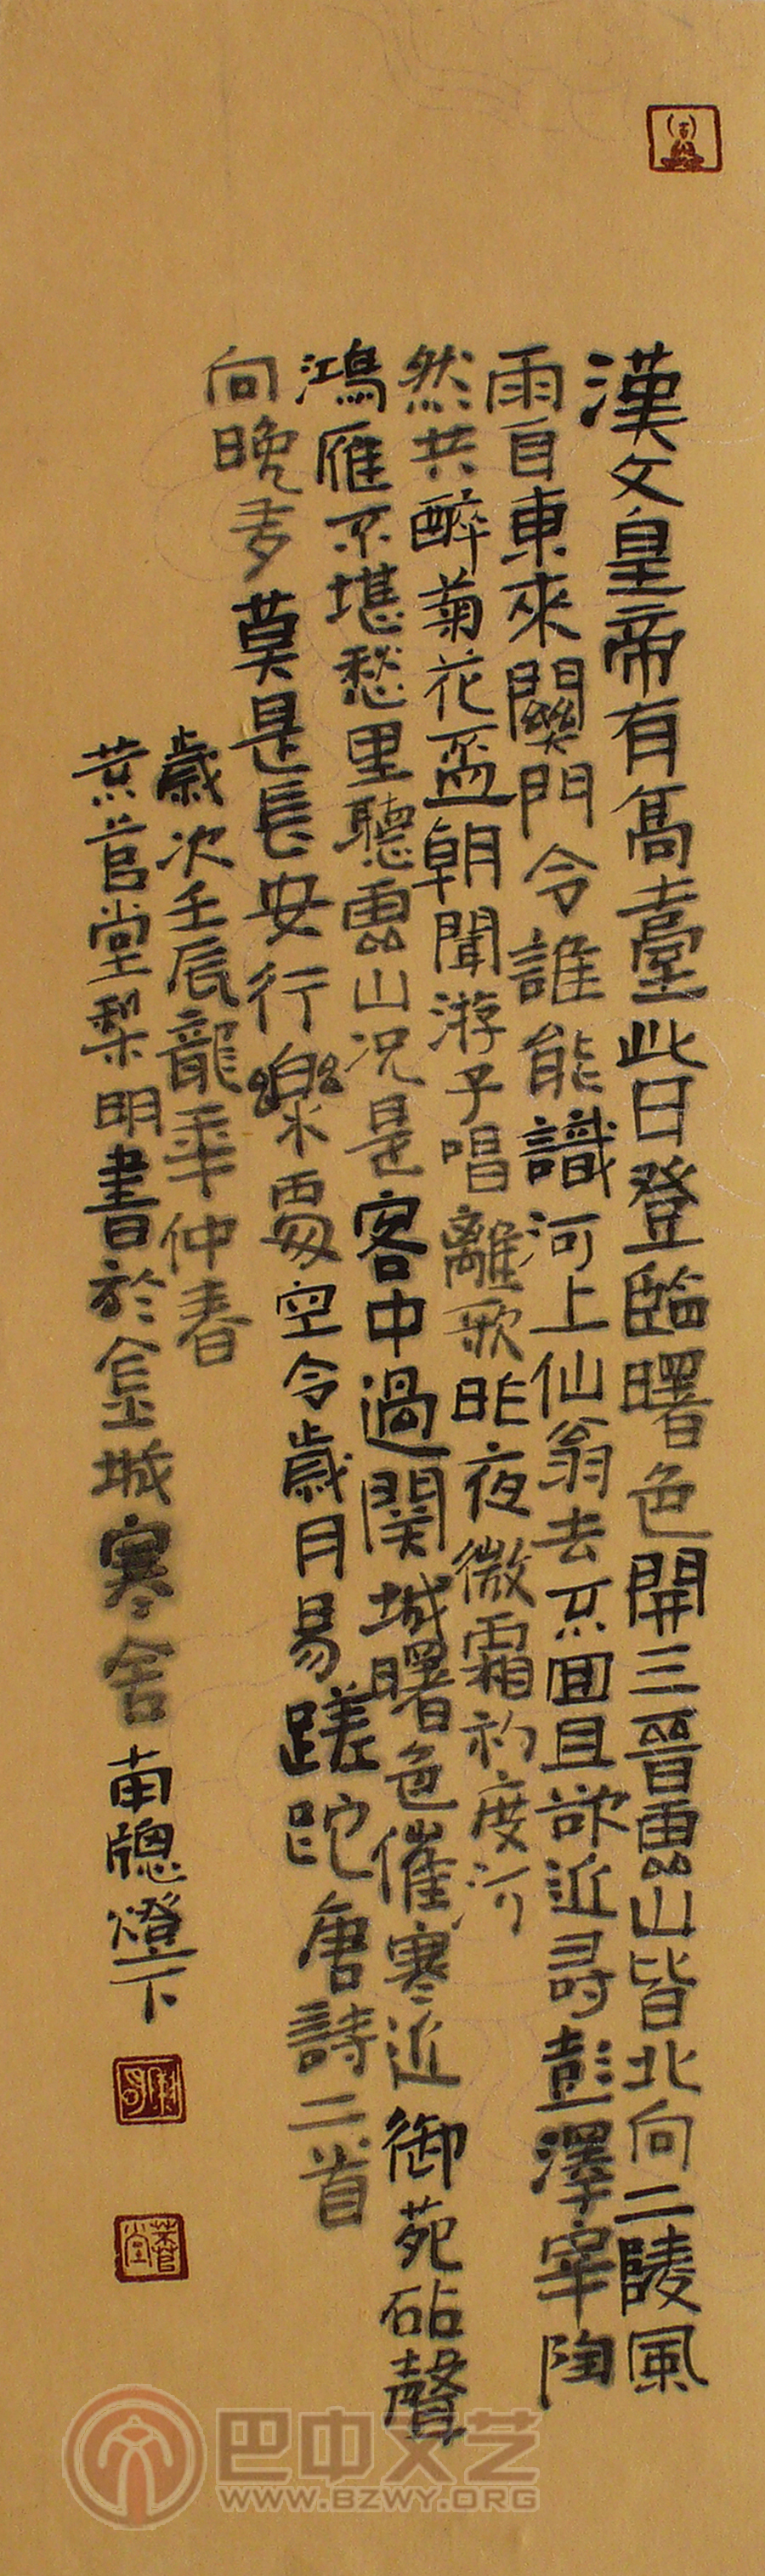 漢文皇帝有高臺此日登臨曙色開三晉雲山皆北向二陵風
雨自東來關門令誰能識河上仙翁去不回且欲近尋彭澤宰陶
然共醉菊花盃朝聞游子唱離歌昨夜微霜初度河
鴻雁不堪愁里聽雲山况是客中過関城曙色催寒近御苑砧聲
向晚多莫是長安行樂處空令歲月易蹉跎唐詩二首
歲次壬辰龍年仲春
黄菅堂梨明書於金城寒舍南窗燈下
巴中文艺
WWW.BZWY.ORG